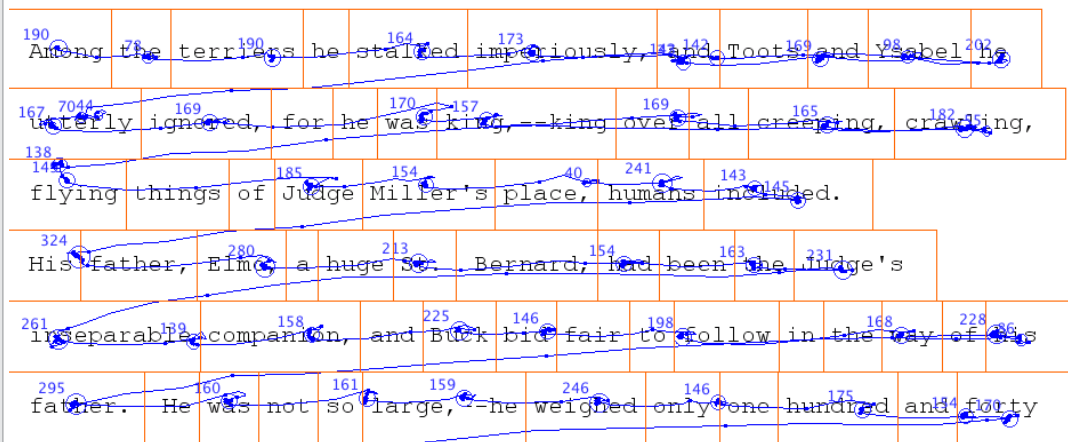 190 78 190 164 173 142 142 169 98 202
Among the terriers he stalked imperiously, and Toots and Ysabel he
167 70 44 169 170 157 169 165 182 55
utterly ignored, for he was king,--king over all creeping, crawling,
138 145 185 154 40 241 143 145
flying things of Judge Miller's place, humans included.
324 280 213 154 163 231
His father, Elmo, a huge St. Bernard, had been the Judge's
261 139 158 225 146 198 168 228 86
inseparable companion, and Buck bid fair to follow in the way of his
295 160 161 159 246 146 175 154 170
father.  He was not so large,--he weighed only one hundred and forty